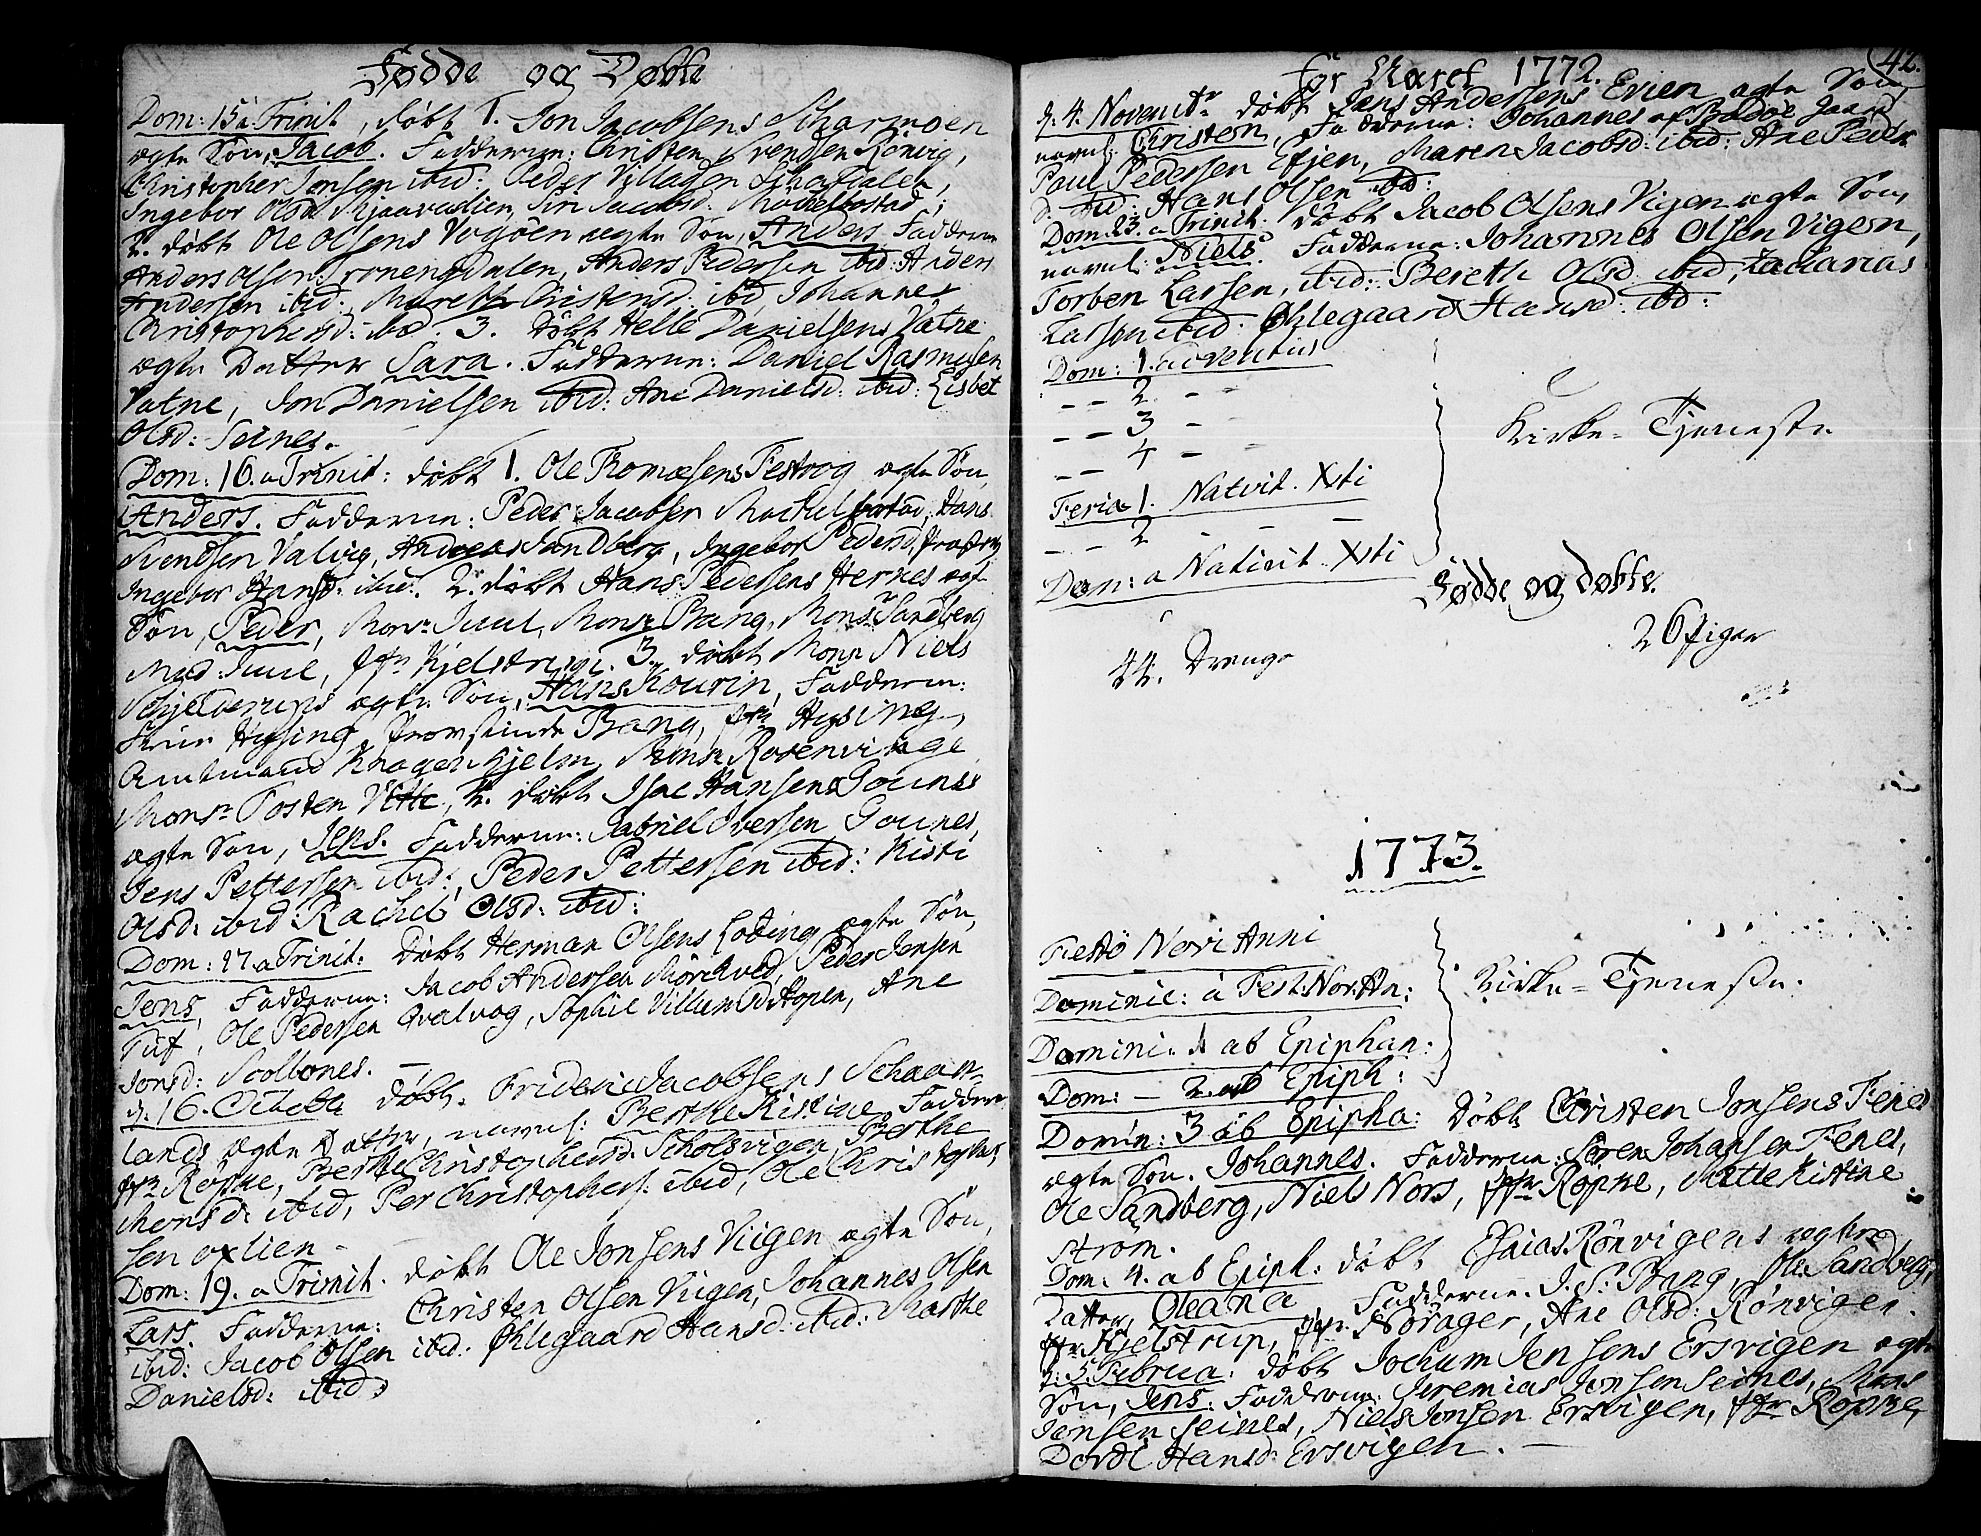 Fødde og Døbte
Dom: 15 a Trinit, døbt 1. Jon Jacobsens Scharmoen
ægte Søn, Jacob. Fadderne: Christen Svendsen Rönvig,
Christopher Jonsen ibid: Peder
Ingebor Olsd Jacobsd:
2. døbt Ole Olsens ægte Søn, Anders Fadderne
Anders Olsen Anders Pedersen ibid: Anders
Andersen ibid: Mareth Christensd: ibd Johanne
Christophersd: ibd. 3. døbt Helle Danielsens Vatne
ægte Datter Sara. Fadderne: Daniel Rasmusen
Vatne, Jon Danielsen ibid: Ane Danielsd: ibid: Lisbet
Olsd: Seines.
Dom: 16. a Trinit: døbt 1. Ole Thomæsens Festvog ægte Søn,
Anders. Fadderne: Peder Jacobsen Hans
Svendsen Valvig, Andreas Sandberg, Ingebor Pedersd,
Ingebor Hansd: ibid: 2. døbt Hans Pedersens Hernes ægt
Søn, Peder, Monsr Juul, Monsr Bang, Monsr Sandberg
Mad: Juul, Jfr Kjelstrup. 3. døbt Monsr Niels
Schjelderups ægte Søn, Hans Kourin, Fadderne:
Hysing, Provstinde Bang, Jfr Hysing,
Amtmand Knagenhjelm, Monsr Rosenvinge
Monsr Tosten Vette, 4. døbt Isac Hansens Godnes
ægte Søn, Jens. Fadderne: Gabriel Iversen Godnes,
Jens Pettersen ibid: Peder Pettersen ibid: Kisti
Olsd: ibid: Rachel Olsd: ibid:
Dom: 17. a Trinit: Døbt Herman Olsens Loding ægte Søn,
Jens, Fadderne: Jacob Andersen Mörchved, Peder Jensen
Tuf, Ole Pedersen Qvalvog, Sophie Villumsd Hopen, Ane
Jonsd: Scolbones. —
d. 16. Octob døbt. Frideric Jacobsens Schaan-
lands ægte Datter, navnl: Berthe Kistine Fadderne
Jfr Röpke, Berthe Christophersd: Scholsvigen, Berthe
Monsd: ibid, Per Christophers: ibid, Ole Christopher
sen oxlien -
Dom: 19. a Trinit. døbt Ole Jonsens Viigen ægte Søn,
Lars. Fadderne: Christen Olsen Viigen, Johannes Olsen
ibid: Jacob Olsen ibid: Øhlegaard Hansd: ibid: Marthe
Danielsd: ibid:
for Aaret 1772.
42.
d. 4. Novembr døbt Jens Andersens Evjen ægte Søn,
navnl: Christen, Fadderne: Johannes af Bodöe Gaard
Paul Pedersen Efjen, Maren Jacobsd: ibid: Ane Peder
d: ibid: Hans Olsen ibd:
Dom: 23. a Trinit. døbt Jacob Olsens Vigen ægte Søn,
navnl: Niels. Fadderne: Johannes Olsen Vigen,
Torben Larsen, ibid: Bereth Olsd ibid, Zacharias
Larsen ibid. Øhlegaard Hansd: ibd:
Dom: 1. adventus
- - 2 - -
- - 3 -
- - 4 - -
Kirke-Tjeneste
Feria 1. Nativit. Xsti
- - 2 - -
Dom: a Nativit. Xsti
Fødde og døbte.
44. Drenge
26 piger
1773.
Festo Novi Anni
Dominic: a Fest: Nov: An:
Kirke-Tjeneste.
Domini. 1 ab Epiphan:
Dom: - 2. ab Epiph:
Domin: 3 ab Epipha: Døbt Christen Jonsens Fenes
ægte Søn. Johannes. Fadderne: Sören Johansen Fenes,
Ole Sandberg, Niels Nors, Jfr Röpke, Mette Kistine
Strom.
Dom: 4. ab Epiph: døbt Esaias Rönvigens ægte
Datter, Oleana. Fadderne. J. S. Bang, Ole Sandberg,
Jfr Kjelstrup, Jfr. Norager, Ane Olsd: Rönvigen.
d: 5 Februa: døbt Jochum Jensens Ersvigen ægte
Søn, Jens. Fadderne: Jeremias Jonsen Seines, Mons
Jensen Seines, Niels Jonsen Ersvigen, Jfr Röpke,
Dordi Hansd: Ersvigen. —